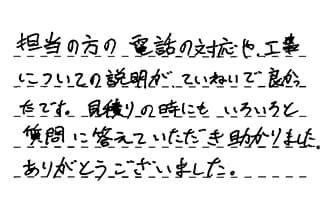 担当の方の電話の対応や、工事
についての説明が、ていねいで良かっ
たです。見積りの時にもいろいろと
質問に答えていただき助かりました。
ありがとうございました。